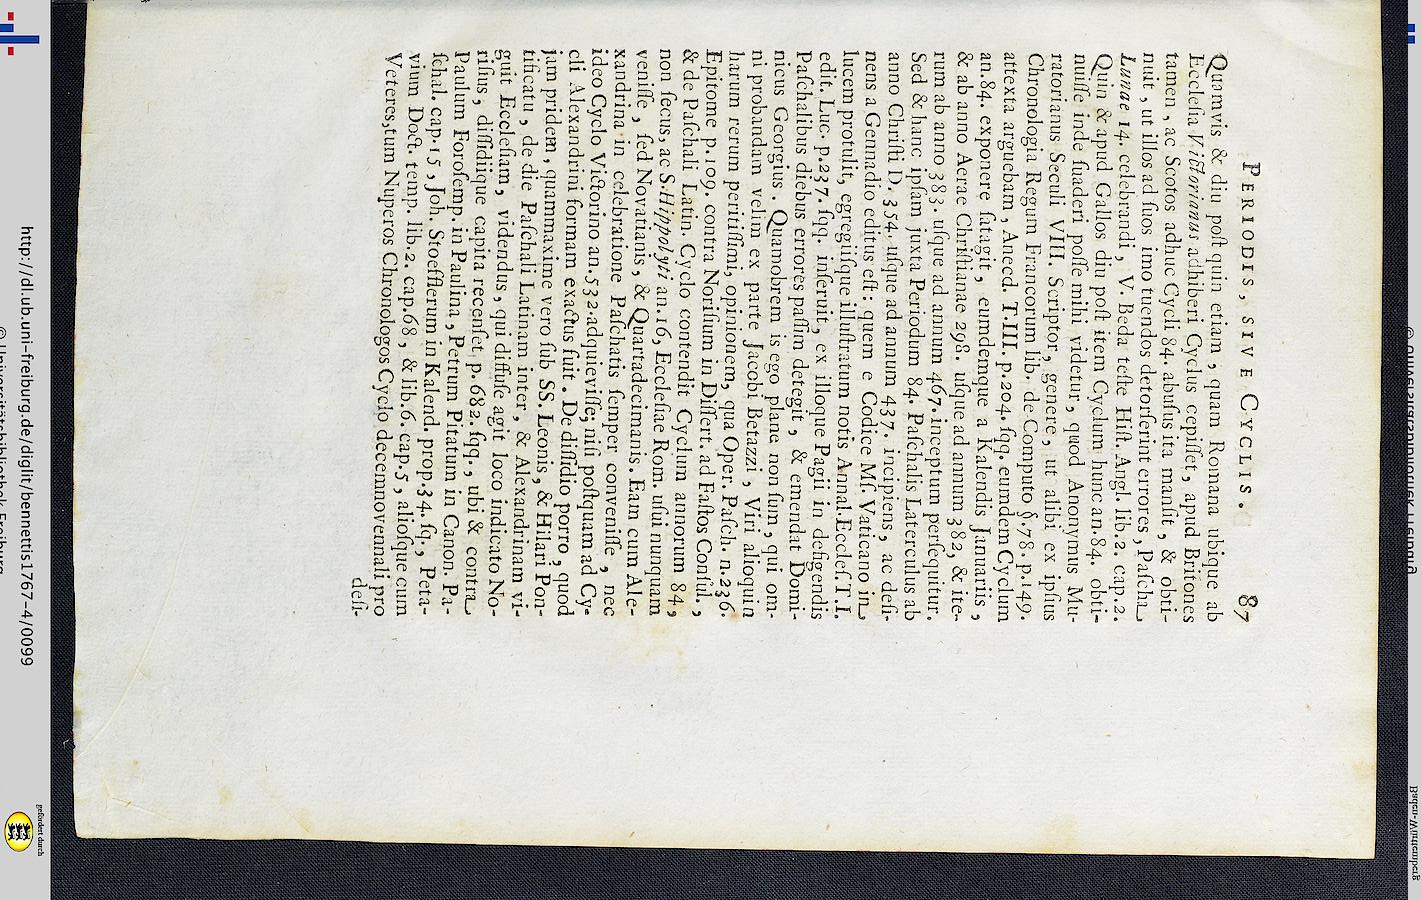 PERIODIS, SIVE CYCLIS. 87
Quamvis & diu poſt quin etiam, quam Romana ubique ab
Eccleſia Victorianus adhiberi Cyclus cepiſſet, apud Britones
tamen, ac Scotos adhuc Cycli 84. abuſus ita manſit, & obti-
nuit, ut illos ad ſuos imo tuendos detorſerint errores, Paſcha
Lunae 14. celebrandi, V. Beda teſte Hiſt. Angl. lib.2. cap.2.
Quin & apud Gallos diu poſt item Cyclum hunc an.84. obti-
nuiſſe inde ſuaderi poſſe mihi videtur, quod Anonymus Mu-
ratorianus Seculi VIII. Scriptor, genere, ut alibi ex ipſius
Chronologia Regum Francorum lib. de Computo §.78. p.149.
attexta arguebam, Anecd. T.III. p.204. ſqq. eumdem Cyclum
an.84. exponere ſatagit, eumdemque a Kalendis Januariis,
& ab anno Aerae Chriſtianae 298. uſque ad annum 382, & ite-
rum ab anno 383. uſque ad annum 467. inceptum perſequitur.
Sed & hanc ipſam juxta Periodum 84. Paſchalis Laterculus ab
anno Chriſti D. 354. uſque ad annum 437. incipiens, ac deſi-
nens a Gennadio editus eſt: quem e Codice Mſ. Vaticano in
lucem protulit, egregiiſque illuſtratum notis Annal. Eccleſ. T. I.
edit. Luc. p.237. ſqq. inſeruit, ex illoque Pagii in defigendis
Paſchalibus diebus errores paſſim detegit, & emendat Domi-
nicus Georgius. Quamobrem is ego plane non ſum, qui om-
ni probandam velim ex parte Jacobi Betazzi, Viri alioquin
harum rerum peritiſſimi, opinionem, qua Oper. Paſch. n.236.
Epitome p.109. contra Noriſium in Diſſert. ad Faſtos Conſul.,
& de Paſchali Latin. Cyclo contendit Cyclum annorum 84,
non ſecus, ac S. Hippolyti an.16, Eccleſiae Rom. uſui nunquam
veniſſe, ſed Novatianis, & Quartadecimanis. Eam cum Ale-
xandrina in celebratione Paſchatis ſemper conveniſſe, nec
ideo Cyclo Victorino an.532. adquieviſſe; niſi poſtquam ad Cy-
cli Alexandrini formam exactus fuit. De diſſidio porro, quod
jam pridem, quammaxime vero ſub SS. Leonis, & Hilari Pon-
tificatu, de die Paſchali Latinam inter, & Alexandrinam vi-
guit Eccleſiam, videndus, qui diffuſe agit loco indicato No-
riſius, diſſidiique capita recenſet p.682. ſqq., ubi & contra
Paulum Foroſemp. in Paulina, Petrum Pitatum in Canon. Pa-
ſchal. cap.15, Joh. Stoefflerum in Kalend. prop.34. ſq., Peta-
vium Doct. temp. lib.2. cap.68, & lib.6. cap.5, alioſque cum
Veteres, tum Nuperos Chronologos Cyclo decemnovennali pro
deſi-
http://dl.ub.uni-freiburg.de/diglit/bennettis1767-4/0099
© Universitätsbibliothek Freiburg
gefördert durch